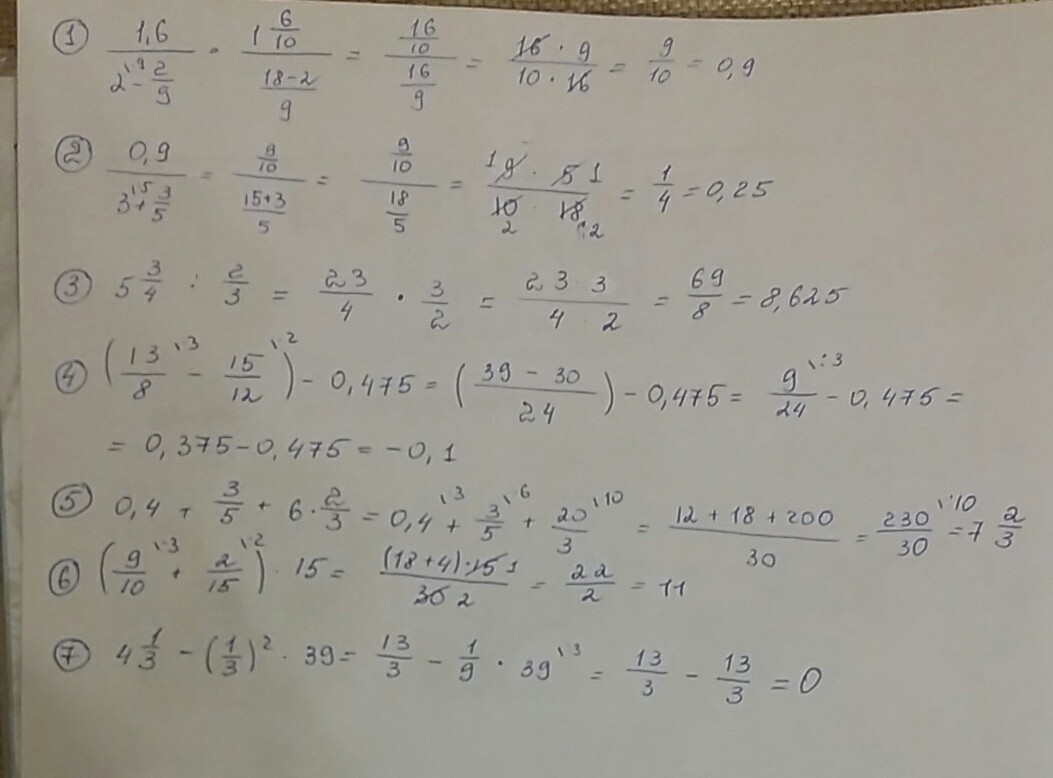 ① 1,6 / (2\·9 - 2/9) = 1 6/10 / ((18-2)/9) = (16/10) / (16/9) = (16 · 9) / (10 · 16) = 9/10 = 0,9
② 0,9 / (3\·5 + 3/5) = (9/10) / ((15+3)/5) = (9/10) / (18/5) = (1 9 · 5 1) / (10 2 · 18 2) = 1/4 = 0,25
③ 5 3/4 : 2/3 = 23/4 · 3/2 = (23 · 3) / (4 · 2) = 69/8 = 8,625
④ (13/8 \·3 - 15/12 \·2) - 0,475 = ((39 - 30)/24) - 0,475 = 9/24 \:3 - 0,475 =
= 0,375 - 0,475 = -0,1
⑤ 0,4 + 3/5 + 6 · 2/3 = 0,4 \·3 + 3/5 \·6 + 20/3 \·10 = (12 + 18 + 200)/30 = 230/30 \·10 = 7 2/3
⑥ (9/10 \·3 + 2/15 \·2) · 15 = ((18+4) · 15 1) / (30 2) = 22/2 = 11
⑦ 4 1/3 - (1/3)² · 39 = 13/3 - 1/9 · 39 \·3 = 13/3 - 13/3 = 0